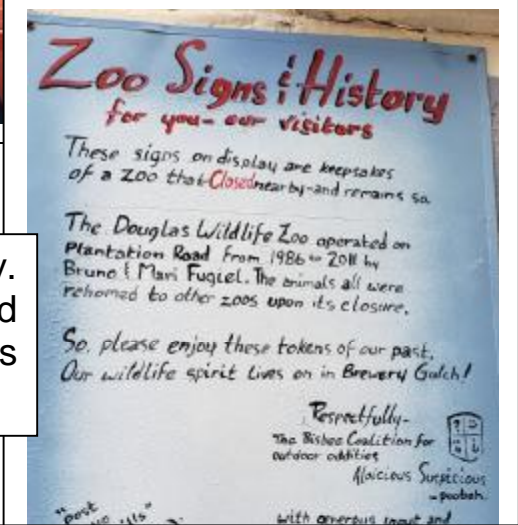 Zoo Signs & History
for you- our visitors
These signs on display are keepsakes
of a zoo that Closed nearby-and remains so.
The Douglas Wildlife Zoo operated on
Plantation Road from 1986 to 2011 by
Bruno & Mari Fugiel. The animals all were
rehomed to other zoos upon its closure.
So, please enjoy these tokens of our past.
Our wildlife spirit Lives on in Brewery Gulch!
Respectfully-
The Bisbee Coalition for
outdoor oddities
Aloicious Suspicious
- poobah.
"post
with generous input and
y.
d
s